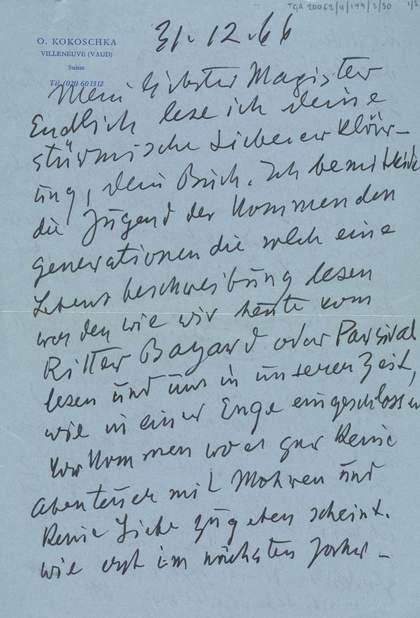 TGA 20062/4/144/2/30 1/2
O. KOKOSCHKA
VILLENEUVE (VAUD)
Suisse
31.12.66
Mein liebster Magister
Endlich lese ich deine
stürmische Liebeserklär-
ung, dein Buch. Ich bemitleide
die Jugend der kommenden
generationen die solch eine
Lebensbeschreibung lesen
werden wie wir heute vom
Ritter Bayard oder Parsival
lesen und uns in unserer Zeit,
wie in einer Enge eingeschlossen
vorkommen wo es gar keine
Abenteuer mit Mohren und
keine Liebe zu geben scheint.
wie erst im nächsten Jahr-